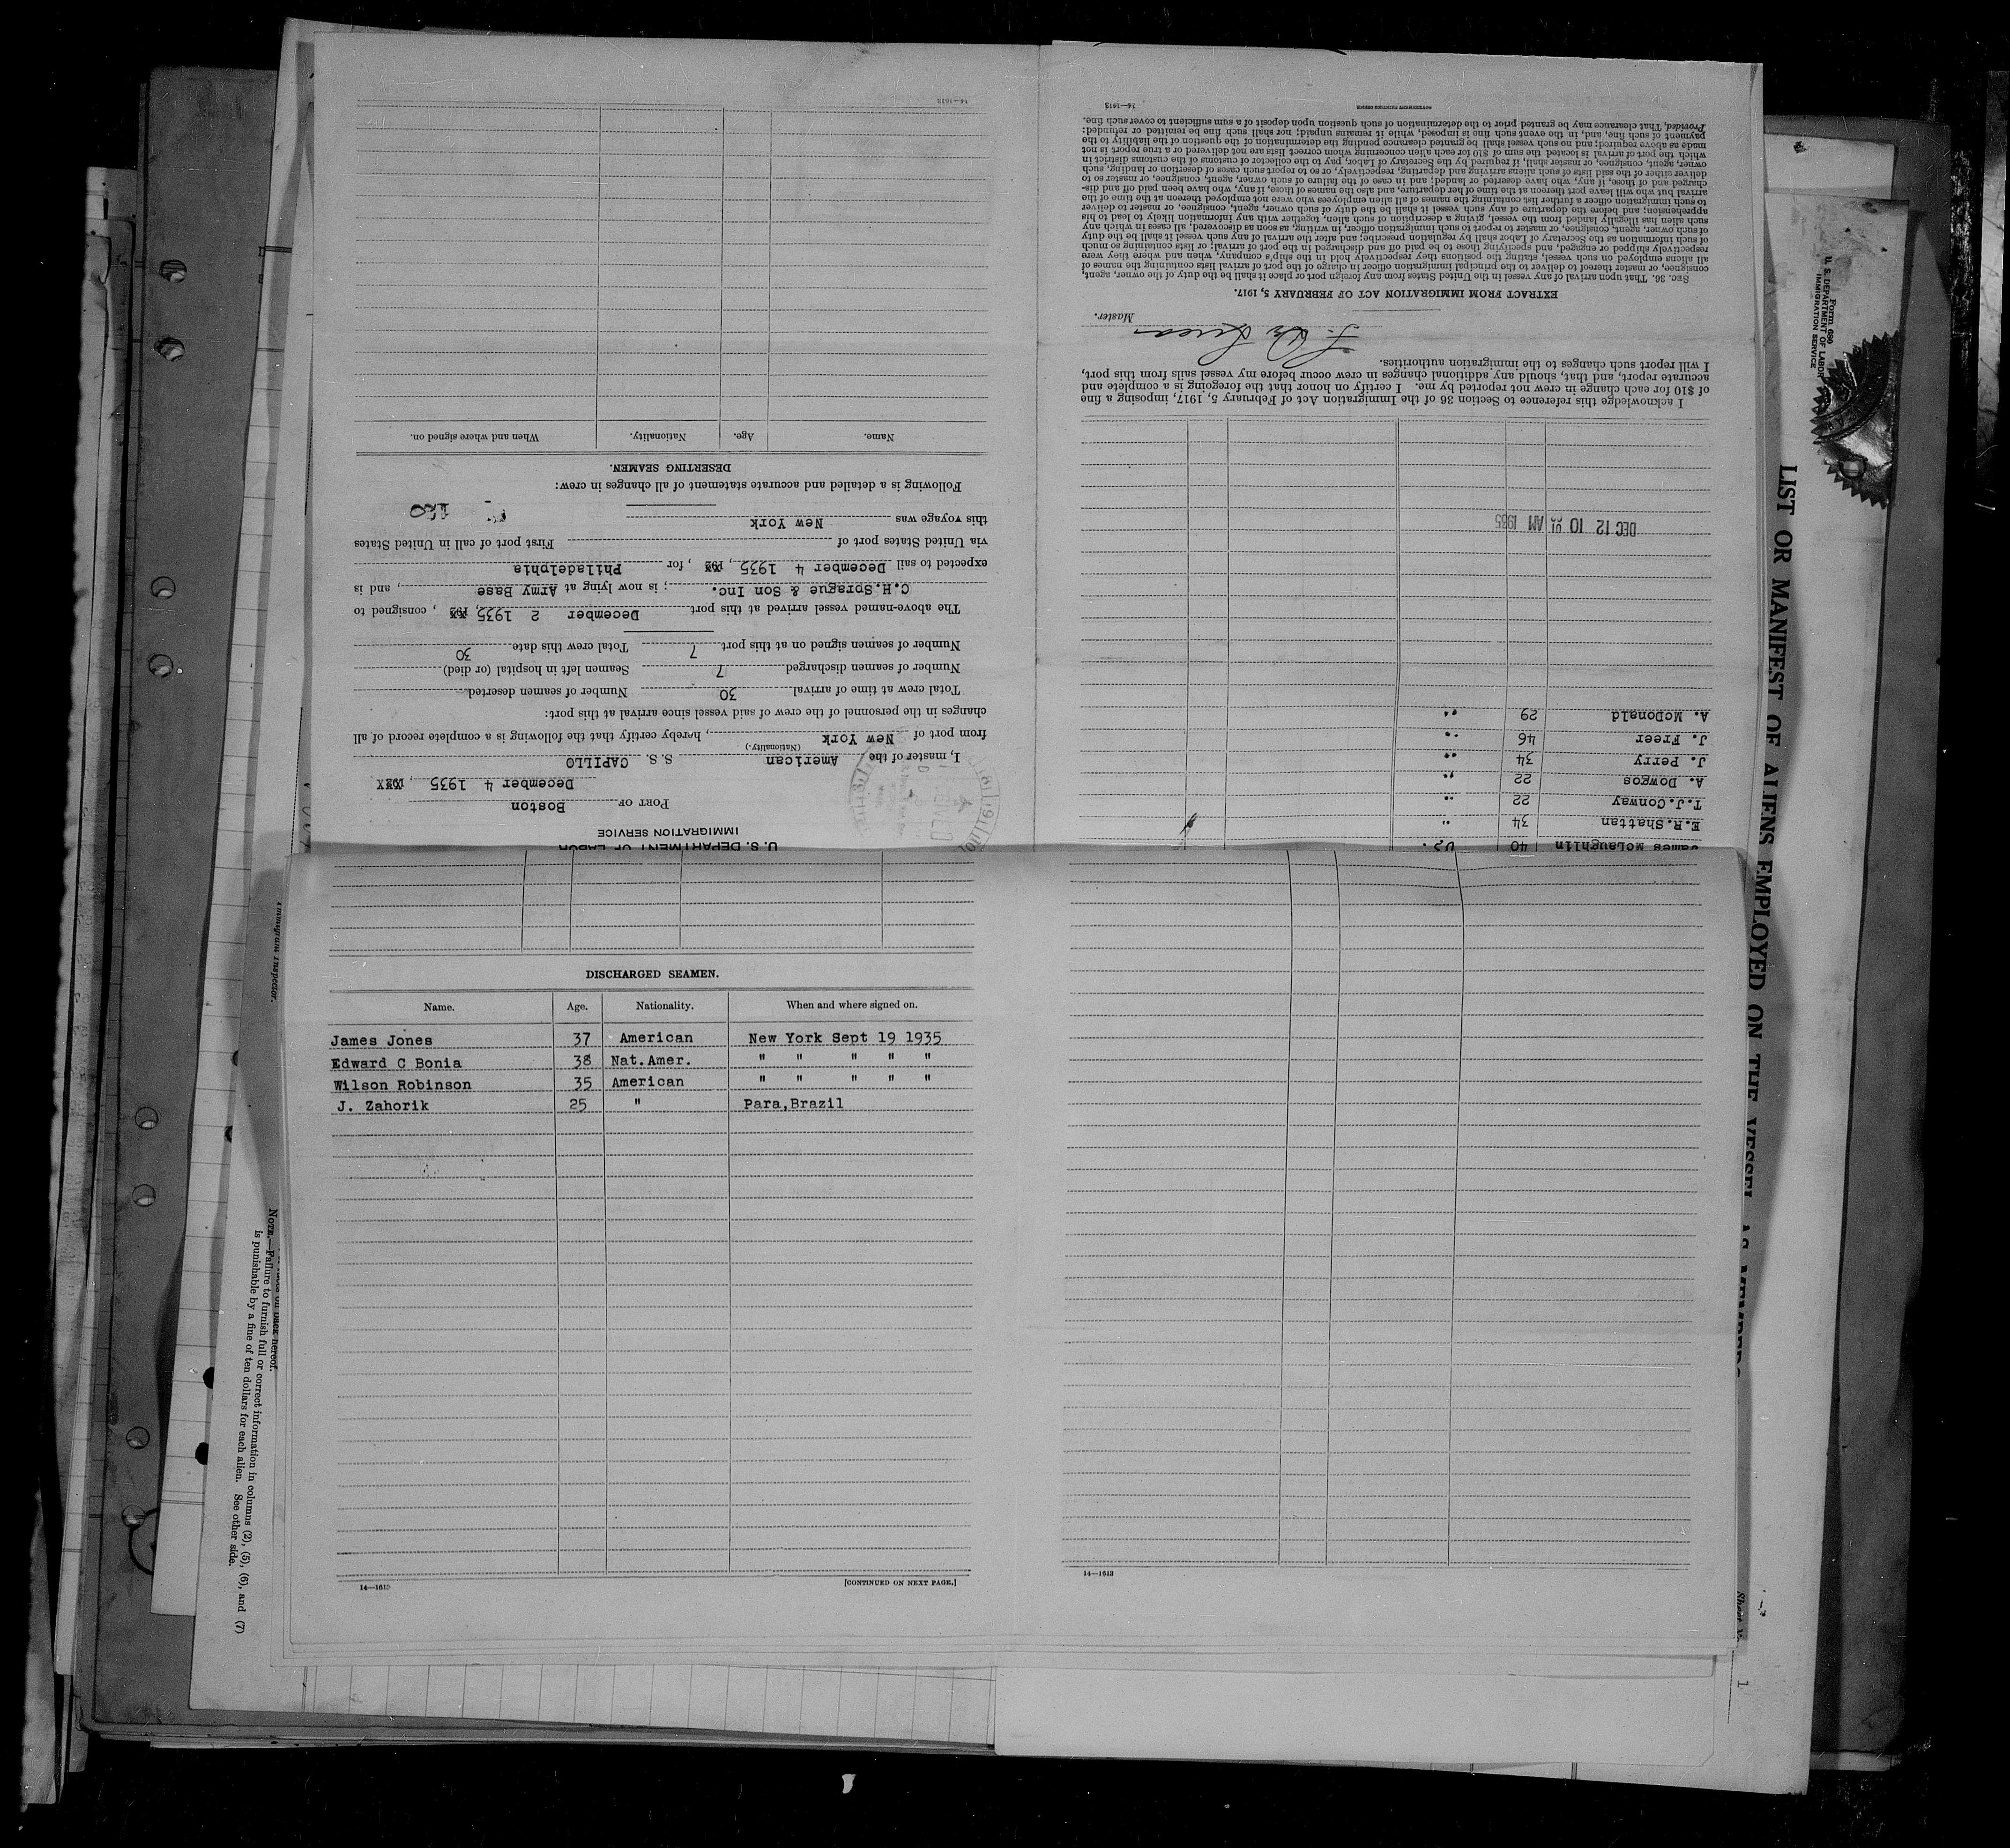 U. S. DEPARTMENT OF LABOR
IMMIGRATION SERVICE
PORT OF Boston
December 4 1935
I, master of the American S. S. CAPILLO
(Nationality.)
from port of New York, hereby certify that the following is a complete record of all
changes in the personnel of the crew of said vessel since arrival at this port:
Total crew at time of arrival 30 Number of seamen deserted
Number of seamen discharged 7 Seamen left in hospital (or died)
Number of seamen signed on at this port 7 Total crew this date 30
The above-named vessel arrived at this port December 2 1935, consigned to
C.H.Sprague & Son Inc. ; is now lying at Army Base, and is
expected to sail December 4 1935, for Philadelphia
via United States port of First port of call in United States
this voyage was New York
Following is a detailed and accurate statement of all changes in crew:
DESERTING SEAMEN.
Name. Age. Nationality. When and where signed on.
14—1613
James McLaughlin 40 U.S.
E.R.Shattan 34 "
T.J.Conway 22 "
A. Dowgos 22 "
J. Perry 34 "
J. Freer 46 "
A. McDonald 29 "
DEC 12 10 AM 1935
I acknowledge this reference to Section 36 of the Immigration Act of February 5, 1917, imposing a fine
of $10 for each change in crew not reported by me. I certify on honor that the foregoing is a complete and
accurate report, and that, should any additional changes in crew occur before my vessel sails from this port,
I will report such changes to the immigration authorities.
Master.
EXTRACT FROM IMMIGRATION ACT OF FEBRUARY 5, 1917.
SEC. 36. That upon arrival of any vessel in the United States from any foreign port or place it shall be the duty of the owner, agent,
consignee, or master thereof to deliver to the principal immigration officer in charge of the port of arrival lists containing the names of
all aliens employed on such vessel, stating the positions they respectively hold in the ship's company, when and where they were
respectively shipped or engaged, and specifying those to be paid off and discharged in the port of arrival; or lists containing so much
of such information as the Secretary of Labor shall by regulation prescribe; and after the arrival of any such vessel it shall be the duty
of such owner, agent, consignee, or master to report to such immigration officer, in writing, as soon as discovered, all cases in which any
such alien has illegally landed from the vessel, giving a description of such alien, together with any information likely to lead to his
apprehension; and before the departure of any such vessel it shall be the duty of such owner, agent, consignee, or master to deliver
to such immigration officer a further list containing the names of all alien employees who were not employed thereon at the time of the
arrival but who will leave port thereon at the time of her departure, and also the names of those, if any, who have been paid off and dis-
charged and of those, if any, who have deserted or landed; and in case of the failure of such owner, agent, consignee, or master so to
deliver either of the said lists of such aliens arriving and departing, respectively, or so to report such cases of desertion or landing, such
owner, agent, consignee, or master shall, if required by the Secretary of Labor, pay to the collector of customs of the customs district in
which the port of arrival is located the sum of $10 for each alien concerning whom correct lists are not delivered or a true report is not
made as above required; and no such vessel shall be granted clearance pending the determination of the question of the liability to the
payment of such fine, and, in the event such fine is imposed, while it remains unpaid; nor shall such fine be remitted or refunded:
Provided, That clearance may be granted prior to the determination of such question upon deposit of a sum sufficient to cover such fine.
14—1613
DISCHARGED SEAMEN.
Name. Age. Nationality. When and where signed on.
James Jones 37 American New York Sept 19 1935
Edward C Bonia 38 Nat.Amer. " " " " "
Wilson Robinson 35 American " " " " "
J. Zahorik 25 " Para,Brazil
14—1613
[CONTINUED ON NEXT PAGE.]
14—1613
Form 680
U. S. DEPARTMENT OF LABOR
IMMIGRATION SERVICE
LIST OR MANIFEST OF ALIENS EMPLOYED ON THE VESSEL AS MEMBERS
Immigrant Inspector.
on back hereof.
NOTE.—Failure to furnish full or correct information in columns (2), (5), (6), and (7)
is punishable by a fine of ten dollars for each alien. See other side.